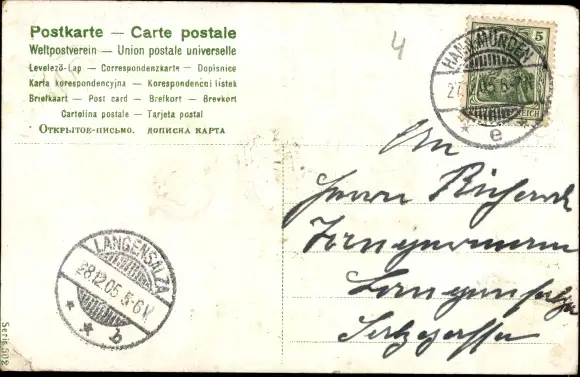 Postkarte — Carte postale
Weltpostverein — Union postale universelle
Levelező-Lap — Correspondenzkarte — Dopisnice
Karta korespondencyjna — Korespondenční lístek
Briefkaart — Post card — Brefkort — Brevkort
Cartolina postale — Tarjeta postal
ОТКРЫТОЕ-ПИСЬМО. ДОПИСНА КАРТА
4
5
HANN. MÜNDEN
e
An
Herrn Richard
Langensalza
LANGENSALZA
28.12.05. 5-6 V.
b
Serie 502